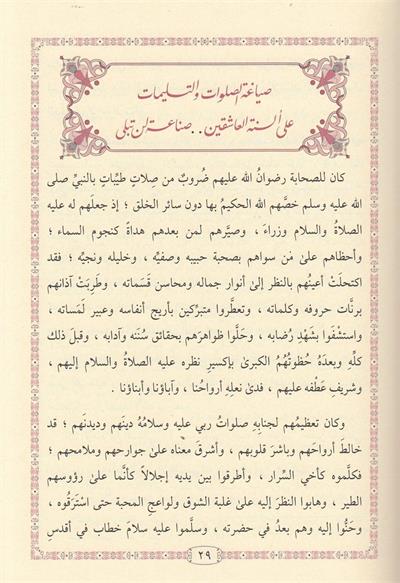 صياغة الصلوات والتسليمات
على ألسنة العاشقين .. صناعة لن تبلى
كان للصحابة رضوانُ الله عليهم ضُروبٌ من صِلاتٍ طيِّباتٍ بالنبيِّ صلى
الله عليه وسلم خصَّهم اللهُ الحكيمُ بها دون سائر الخلق ؛ إذ جعلَهم له عليه
الصلاةُ والسلام وزراءَ ، وصيَّرهم لمن بعدهم هداةً كنجوم السماء ؛
وأحظاهم علىٰ مَن سواهم بصحبة حبيبه وصفيِّه ، وخليله ونجيِّه ؛ فقد
اكتحلَتْ أعينُهم بالنظر إلىٰ أنوار جماله ومحاسن قَسَماته ، وطَرِبَتْ آذانهم
برنَّات حروفه وكلماته ، وتعطَّروا متبرِّكين بأريج أنفاسه وعبير لَمَساته ،
واستشْفَوا بشَهْدِ رُضابه ، وحَلَّوا ظواهرَهم بحقائق سُنَنه وآدابه ، وقبلَ ذلك
كلِّه وبعدَهُ حُظوتُهُمُ الكبرىٰ بإكسيرِ نظره عليه الصلاةُ والسلام إليهم ،
وشريفِ عَطْفه عليهم ، فدىً نعلِهِ أرواحُنا ، وآباؤنا وأبناؤنا .
وكان تعظيمُهم لجنابِهِ صلواتُ ربي عليه وسلامُهُ دينَهم وديدنَهم ؛ قد
خالطَ أرواحَهم وباشرَ قلوبَهم ، وأشرقَ معناه علىٰ جوارحهم وملامحهم ؛
فكلَّموه كأخي السِّرار ، وأطرقوا بين يديه إجلالاً كأنَّما علىٰ رؤوسهم
الطير ، وهابوا النظرَ إليه علىٰ غلبة الشوق ولواعجِ المحبة حتى استَرَقُوه ،
وحَنُّوا إليه وهم بعدُ في حضرته ، وسلَّموا عليه سلامَ خطاب في أقدسِ
٢٩